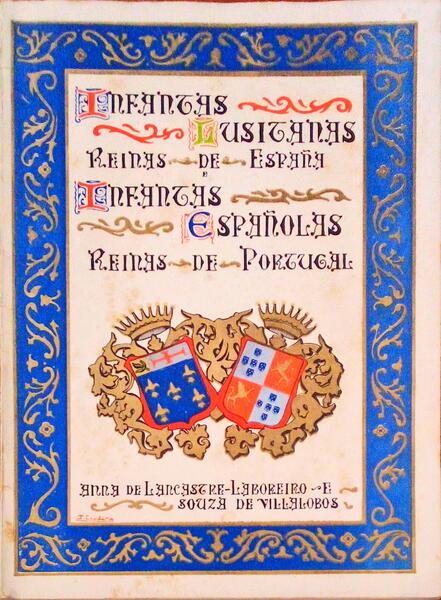 Infantas
Lusitanas
Reinas de España
e
Infantas
Españolas
Reinas de Portugal
Anna de Lancastre-Laboreiro e
Souza de Villalobos